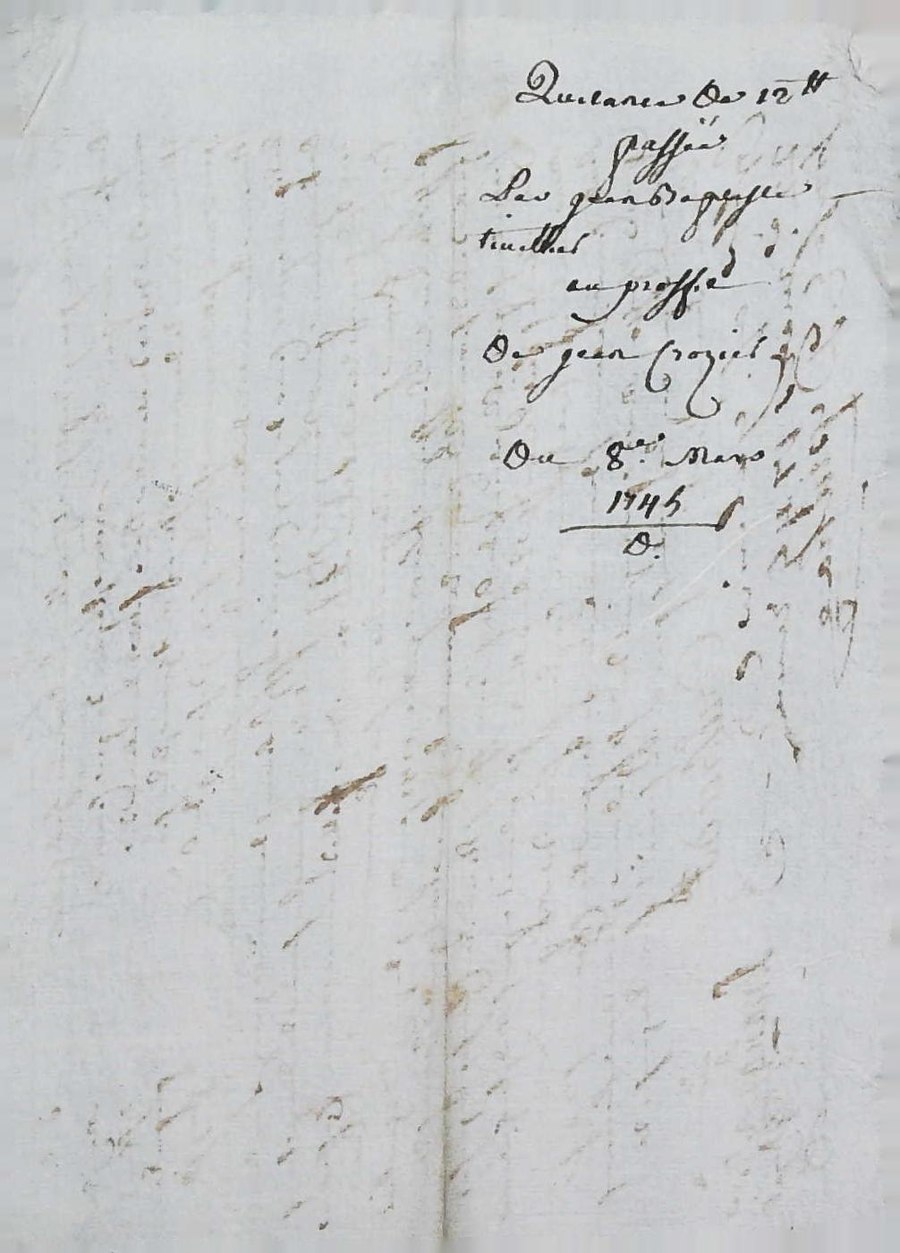 Quitance de 12tt
passée
Par jean Baptiste
au proffit
De jean Crozier
Du 8e. Mars
1745
D.